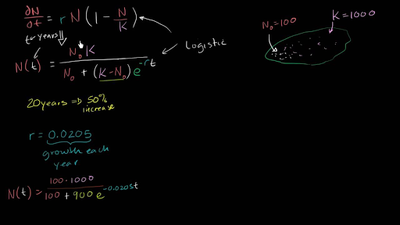 dN/dt = r N (1 - N/K)
t years
N(t) = N₀ K / N₀ + (K - N₀) e^-rt
Logistic
N₀ = 100
K = 1000
20 years ⇒ 50%
increase
r = 0.0205
growth each
year
N(t) = 100 · 1000 / 100 + 900 e^-0.0205t